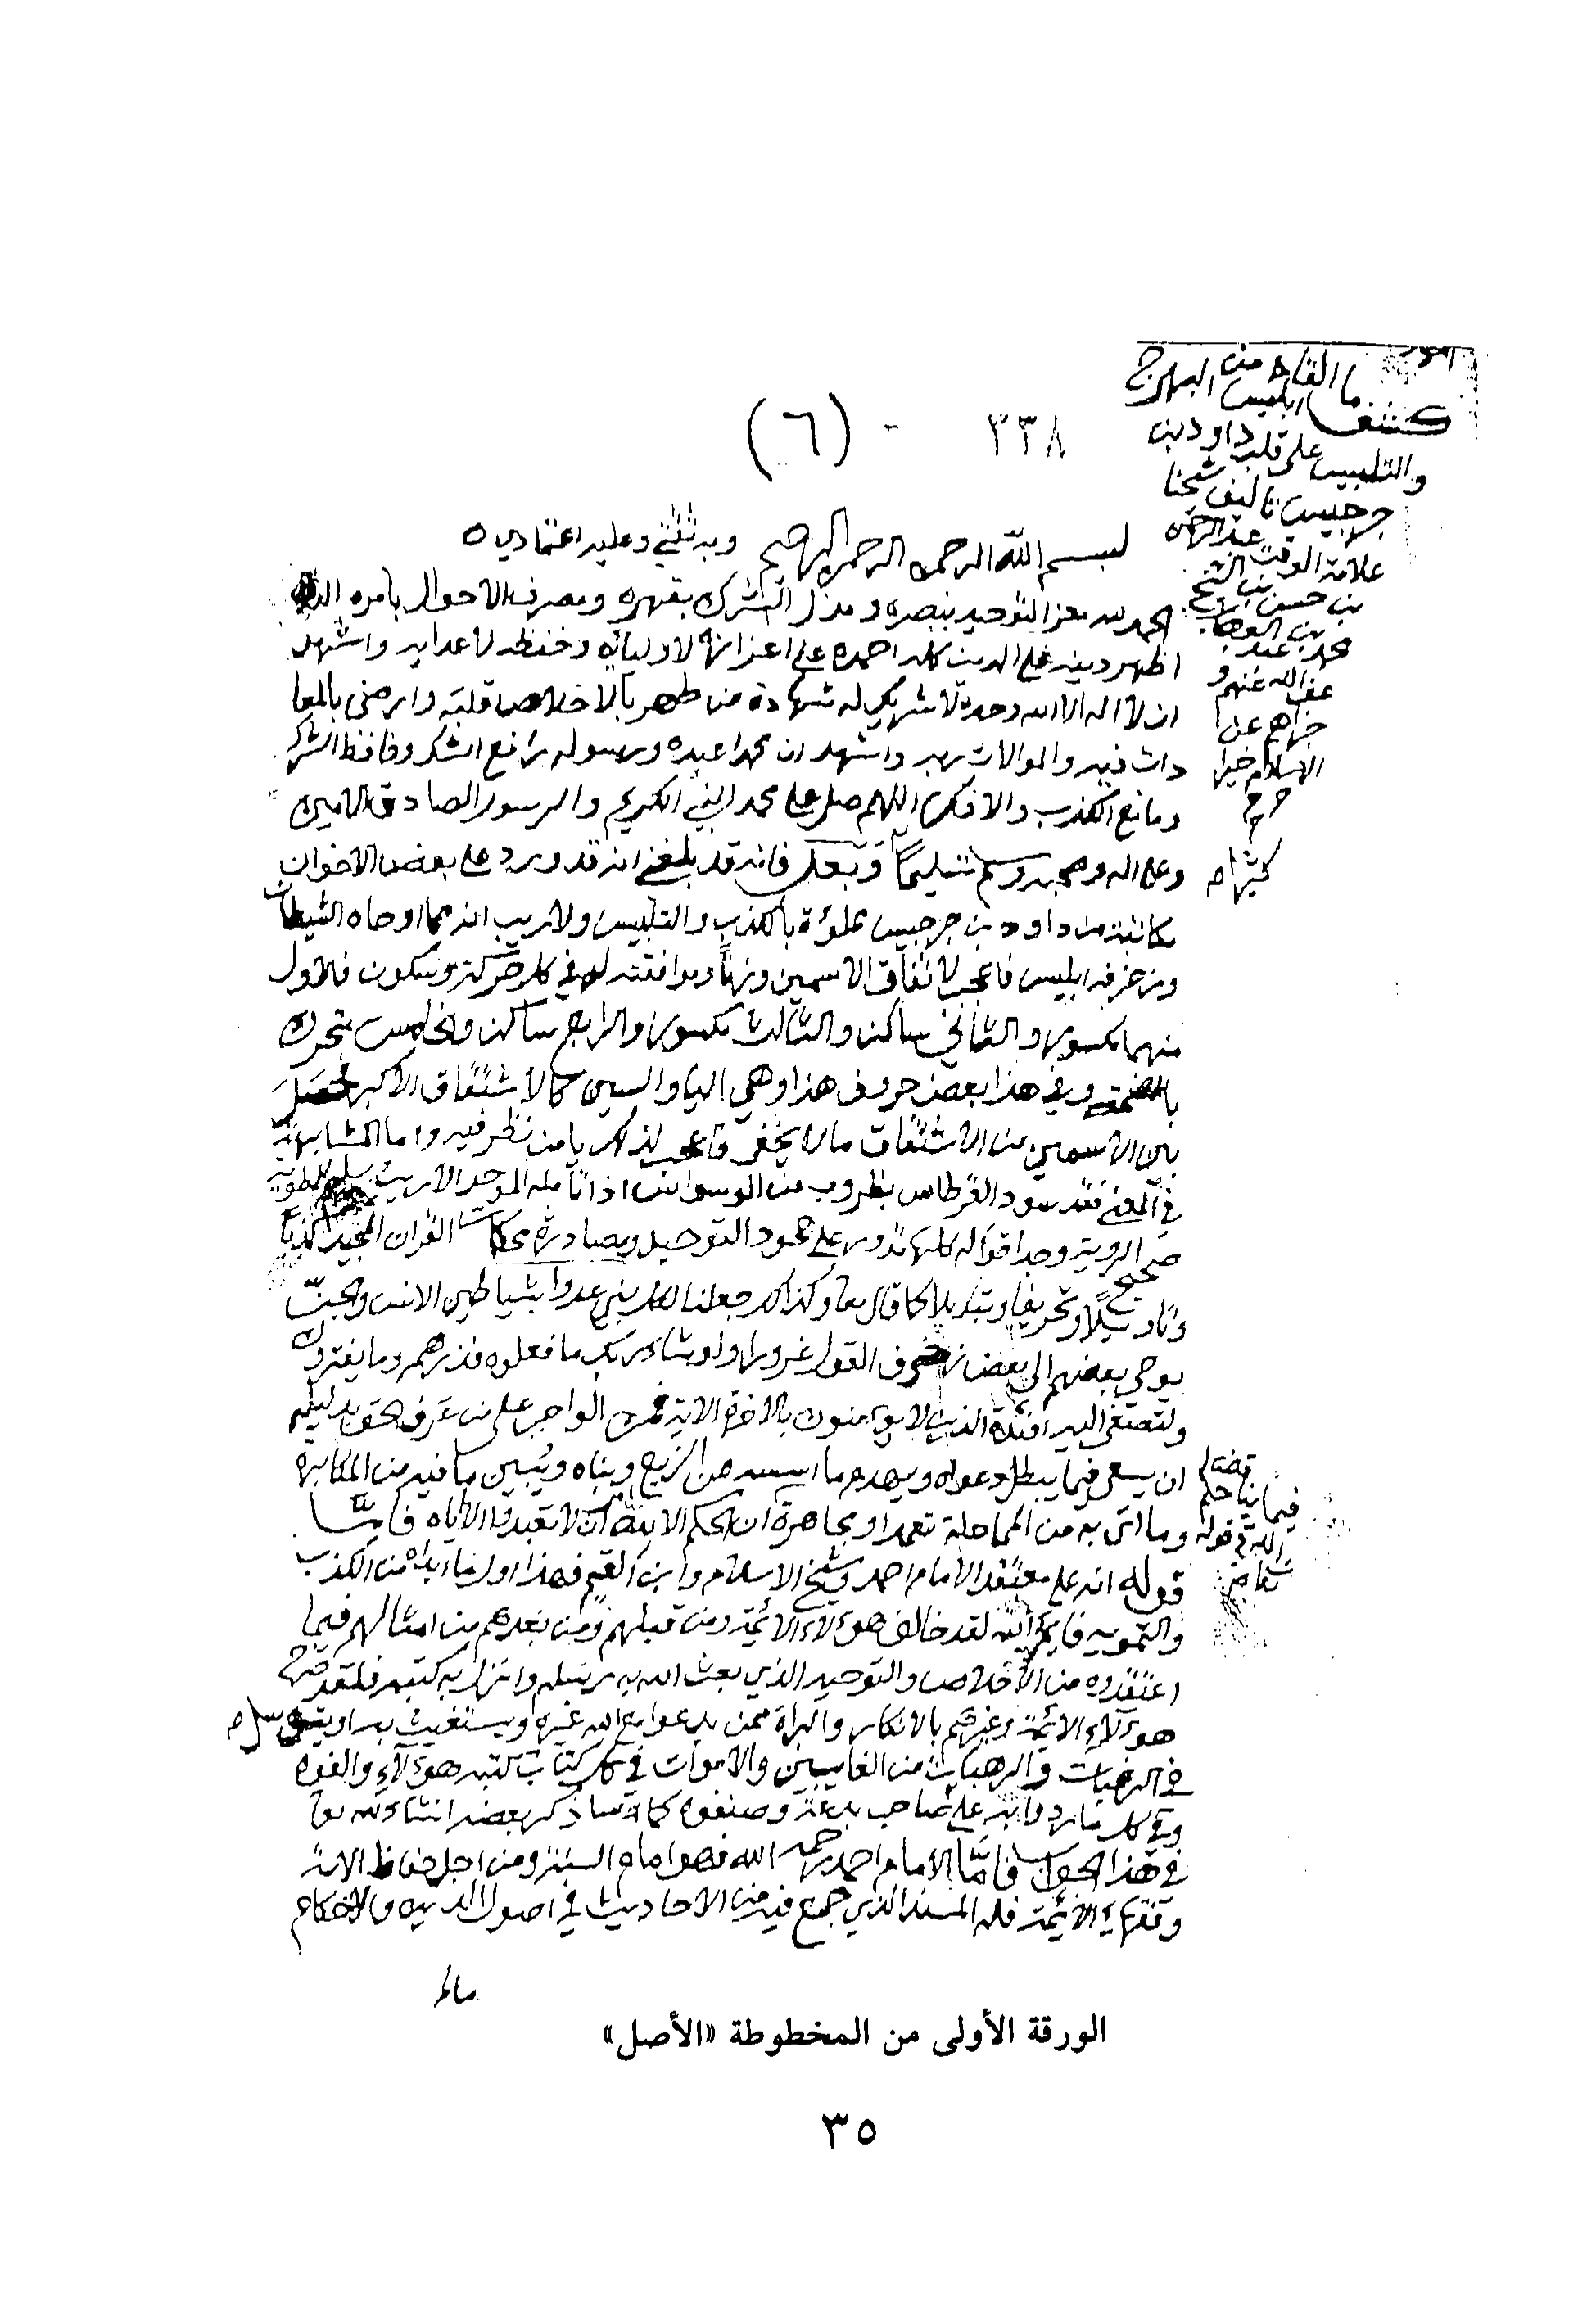 كشف ما القاه من
ابليس البهرج
والتلبيس على قلب داود بن
جرجيس تاليف شيخنا
علامة الوقت عبد الرحمن
بن حسن بن الشيخ
محمد بن عبد الوهاب
عفى الله عنهم و
جزاهم عن
الاسلام خيرا
كثيرا
٣٣٨ - (٦)
بسم الله الرحمن الرحيم وبه ثقتي وعليه اعتمادي
الحمد لله معز التوحيد بنصره ومذل الشرك بقهره ومصرف الاحوال بامره الذي
اظهر دينه على الدين كله احمده على اعزازه لاوليائه وخفضه لاعدايه واشهد
ان لا اله الا الله وحده لا شريك له شهادة من طهر بالاخلاص قلبه وارضى بالمعا
دات فيه والموالات ربه واشهد ان محمدا عبده ورسوله رافع الشك وخافظ الشرك
ومانع الكذب والافك اللهم صل على محمد النبي الكريم والرسول الصادق الامين
وعلى اله وصحبه وسلم تسليما وبعد فانه قد بلغني انه قد ورد على بعض الاخوان
مكاتبة من داود بن جرجيس مملؤة بالكذب والتلبيس ولا ريب انه مما اوحاه الشيطان
وزخرفه ابليس فاعجب لاتفاق الاسمين وزنا وموافقته له في كل حركة وسكون فالاول
منهما مكسور والثاني ساكن والثالث مكسور والرابع ساكن والخامس يتحرك
وفي هذا بعض حروف هذا وهي اليا والسين كالاشتقاق الاكبر فحصل
بين الاسمين من الاشتقاق ما لا يخفى فاعجب لذلك يا من نظر فيه واما المشابهة
في المعنى فقد سود القرطاس بظروب من الوسواس اذا تامله الموحد الاريب سليم الطوية
صحيح الروية وجد اقواله كلها تدور على جحود التوحيد ومصادرة محكمات القران المجيد كذبا
وتاويلا وتحريفا وتبديلا كما قال تعا وكذلك جعلنا لكل نبي عدوا شياطين الانس والجن
يوحي بعضهم الى بعض زخرف القول غرورا ولو شاء ربك ما فعلوه فذرهم وما يفترون
ولتصغى اليه افئدة الذين لا يؤمنون بالاخرة الاية فمن الواجب على من عرف الحق بدليله
ان يسعى فيما يبطل دعواه ويهدم ما اسسه من الزيغ وبناه ويبين ما فيه من المكابره
وما اتى به من المماحلة تعمدا ومجاهرة ان الحكم الا لله امر ان لا تعبدوا الا اياه فاما
فيما
الله في قوله
قوله انه على معتقد الامام احمد وشيخ الاسلام وابن القيم فهذا اول ما ابداه من الكذب
والتمويه فايم الله لقد خالف هؤلاء الائمة ومن قبلهم ومن بعدهم من امثالهم فيما
اعتقدوه من الاخلاص والتوحيد الذي بعث الله به رسله وانزل به كتبه فلقد صرح
هؤلاء الائمة وغيرهم بالانكار والبراة ممن يدعوا مع الله غيره ويستغيث به او يتوسل
في الرغبات والرهبات من الغايبين والاموات في كل كتاب كتبه هؤلاء والفوه
وفي كل ما ردوا به على صاحب بدعة وصنفوه كما ساذكر بعضه انشاء الله تعا
في هذا الجواب فاما الامام احمد رحمه الله فهو امام السنة ومن اجل حفاظ الامة
وفقهاء الائمة فله المسند الذي جمع فيه من الاحاديث في اصول الدين والاحكام
مالم
الورقة الأولى من المخطوطة «الأصل»
٣٥